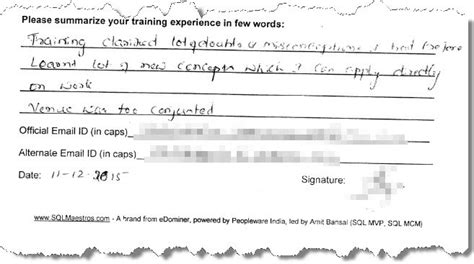 Please summarize your training experience in few words:
Training clarified lot of doubts & misconceptions I had before
Learnt lot of new concepts which I can apply directly
on work
Venue was too conjusted
Official Email ID (in caps)
Alternate Email ID (in caps)
Date: 11-12-2015
Signature:
www.SQLMaestros.com - A brand from eDominer, powered by Peopleware India, led by Amit Bansal (SQL MVP, SQL MCM)